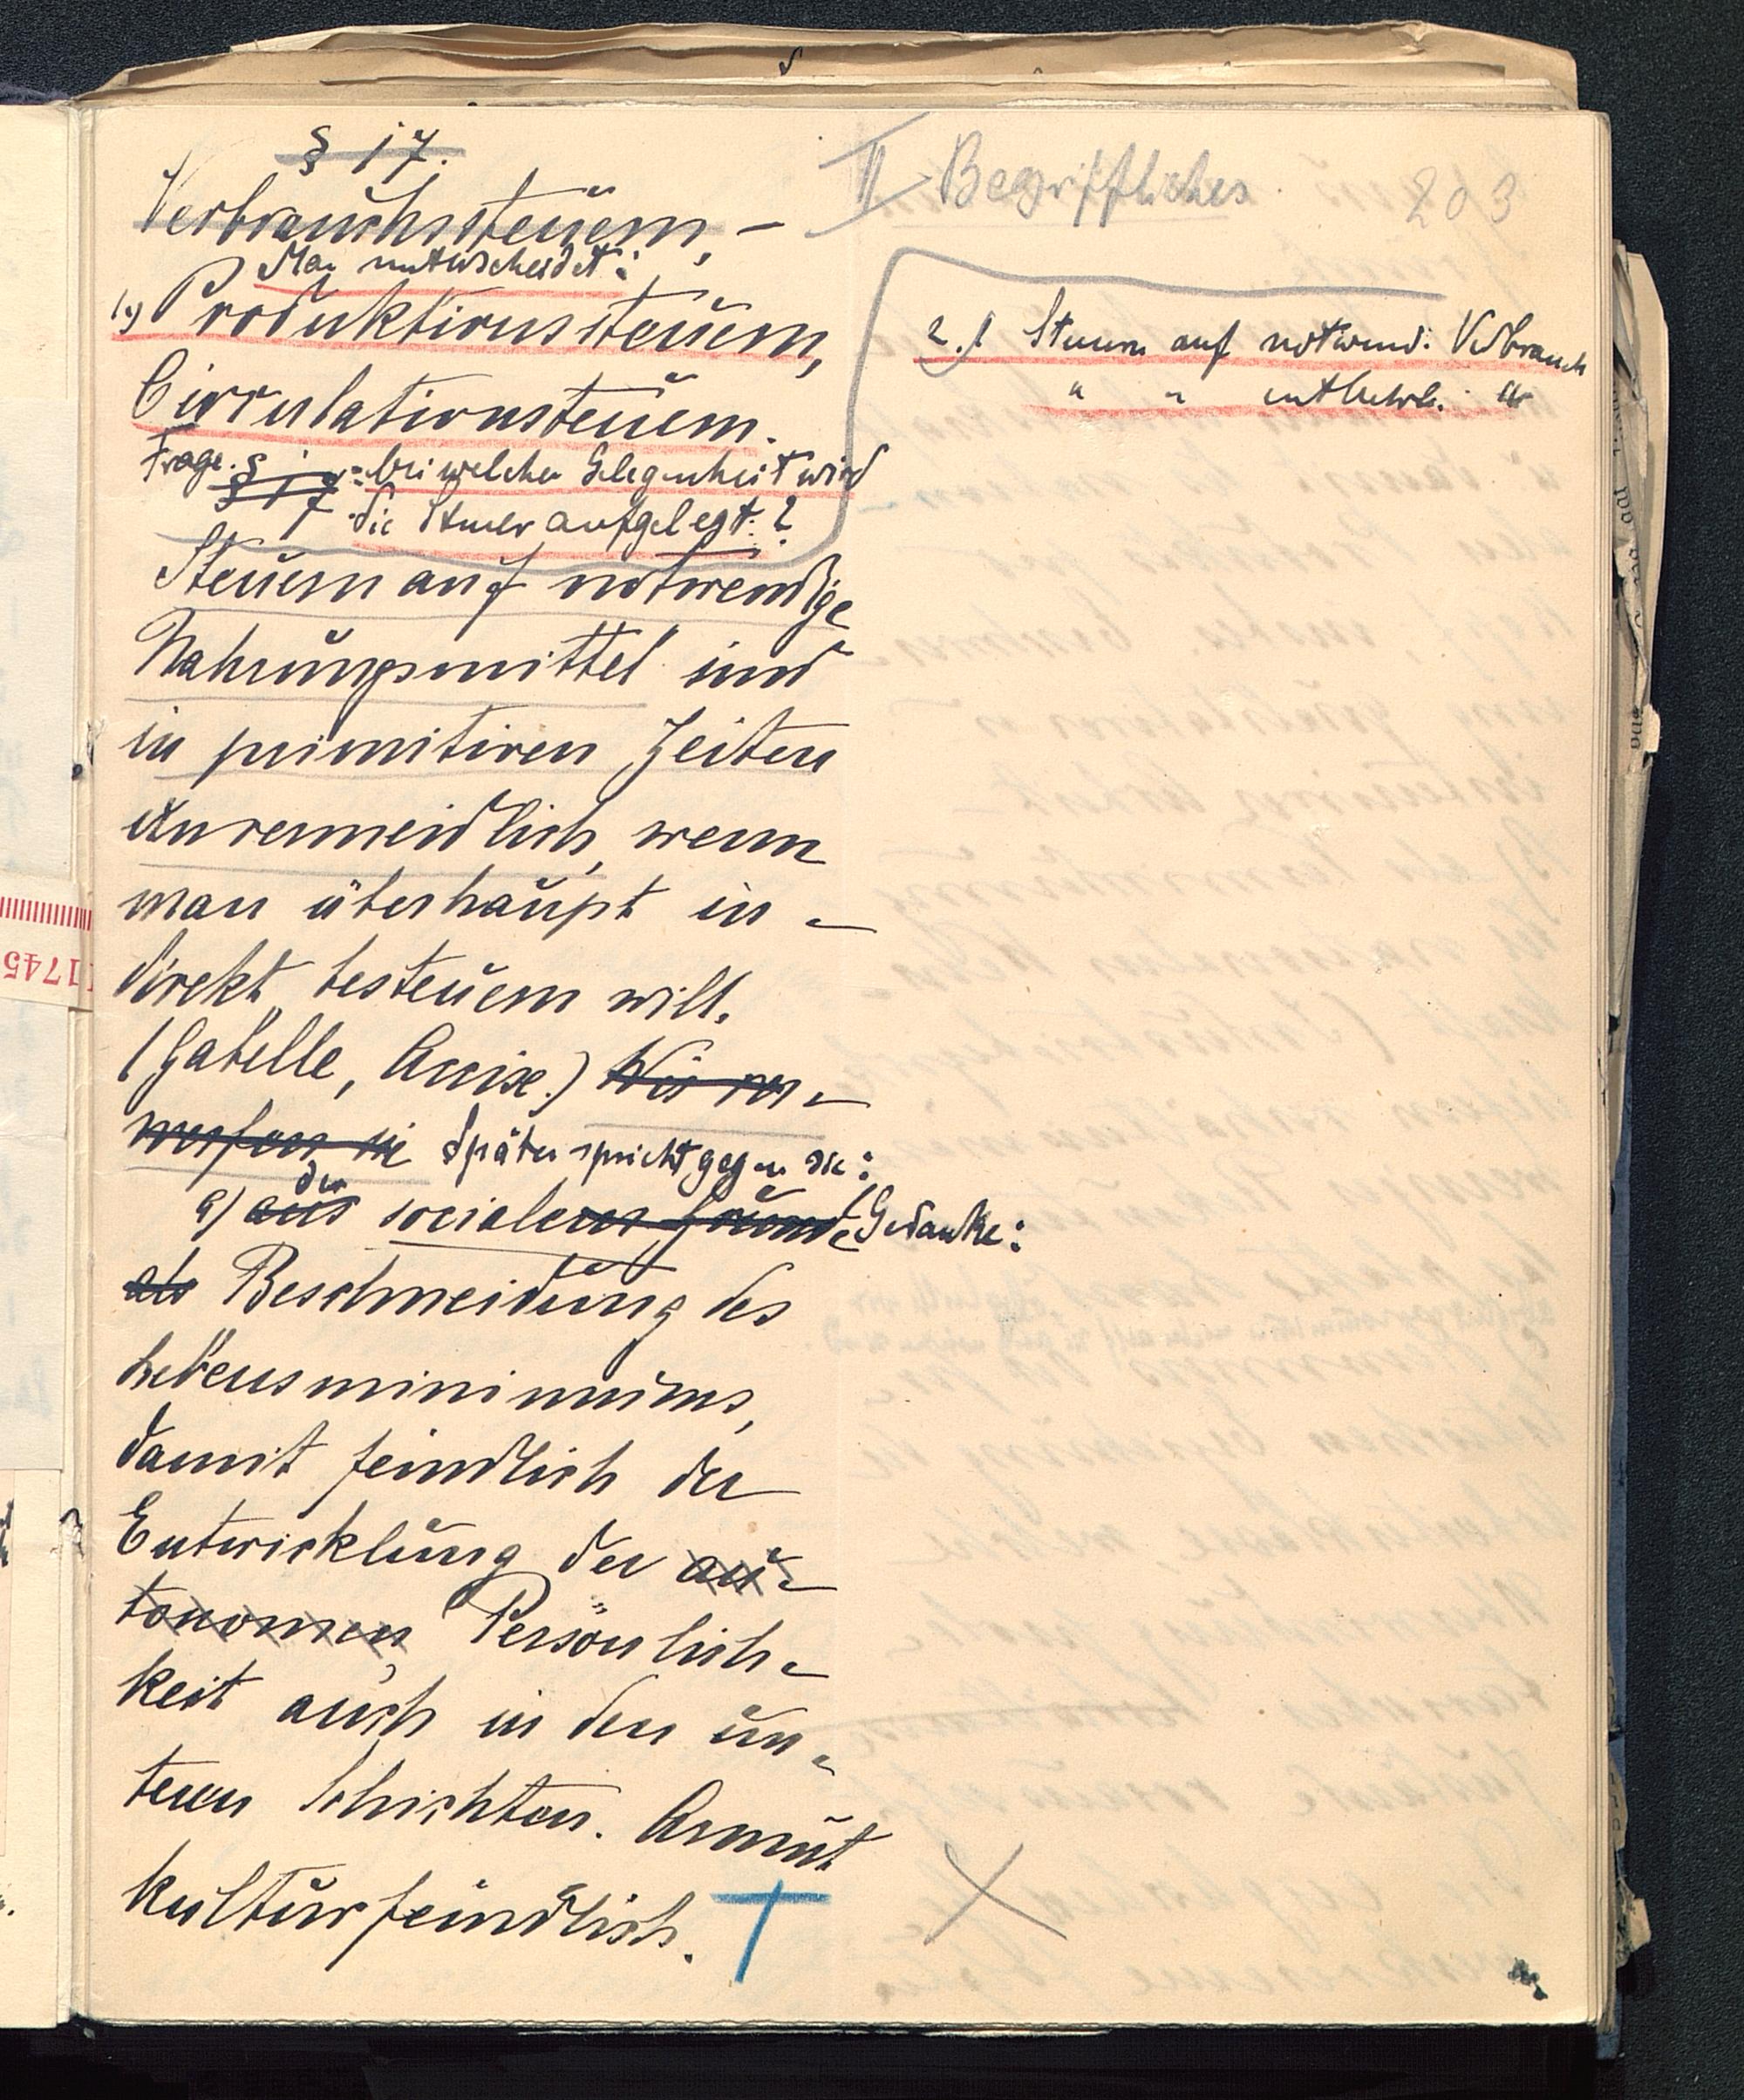 § 17.
II Begriffliches.
203
Verbrauchssteuern, –
Man unterscheidet:
1.) Produktionssteuern,
Cirkulationssteuern.
Frage. § 17: bei welcher Gelegenheit wird
die Steuer aufgelegt?
2.) Steuern auf notwend. Verbrauch
" " entbehrl. "
Steuern auf notwendige
Nahrungsmittel sind
in primitiven Zeiten
unvermeidlich, wenn
man überhaupt in-
direkt besteuern will.
(Gabelle, Accise.) Wir ver-
werfen sie Später spricht gegen sie:
a) aus der socialen Gründe Gedanke:
als Beschneidung des
Lebensminimums,
damit feindlich der
Entwicklung der au-
tonomen Persönlich-
keit auch in den un-
teren Schichten. Armut
kulturfeindlich.
1745